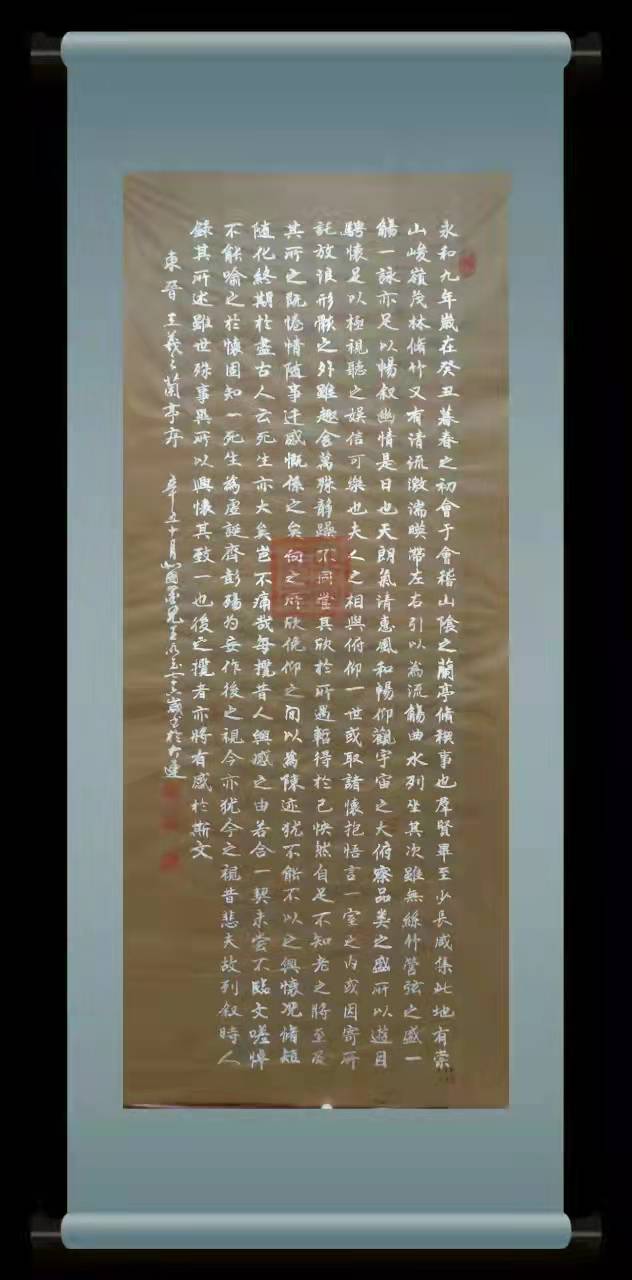 永和九年歲在癸丑暮春之初會于會稽山陰之蘭亭脩稧事也羣賢畢至少長咸集此地有崇
山峻嶺茂林脩竹又有清流激湍暎帶左右引以為流觴曲水列坐其次雖無絲竹管弦之盛一
觴一詠亦足以暢叙幽情是日也天朗氣清惠風和暢仰觀宇宙之大俯察品類之盛所以遊目
騁懷足以極視聽之娛信可樂也夫人之相與俯仰一世或取諸懷抱悟言一室之內或因寄所
託放浪形骸之外雖趣舍萬殊靜躁不同當其欣於所遇暫得於己快然自足不知老之將至及
其所之既惓情隨事迁感慨係之矣向之所欣俛仰之間以為陳迹猶不能不以之興懷况脩短
隨化終期於盡古人云死生亦大矣豈不痛哉每攬昔人興感之由若合一契未嘗不臨文嗟悼
不能喻之於懷固知一死生為虛誕齊彭殤為妄作後之視今亦猶今之視昔悲夫故列叙時人
錄其所述雖世殊事異所以興懷其致一也後之攬者亦將有感於斯文
東晉 王羲之蘭亭序 辛丑十月 於大連